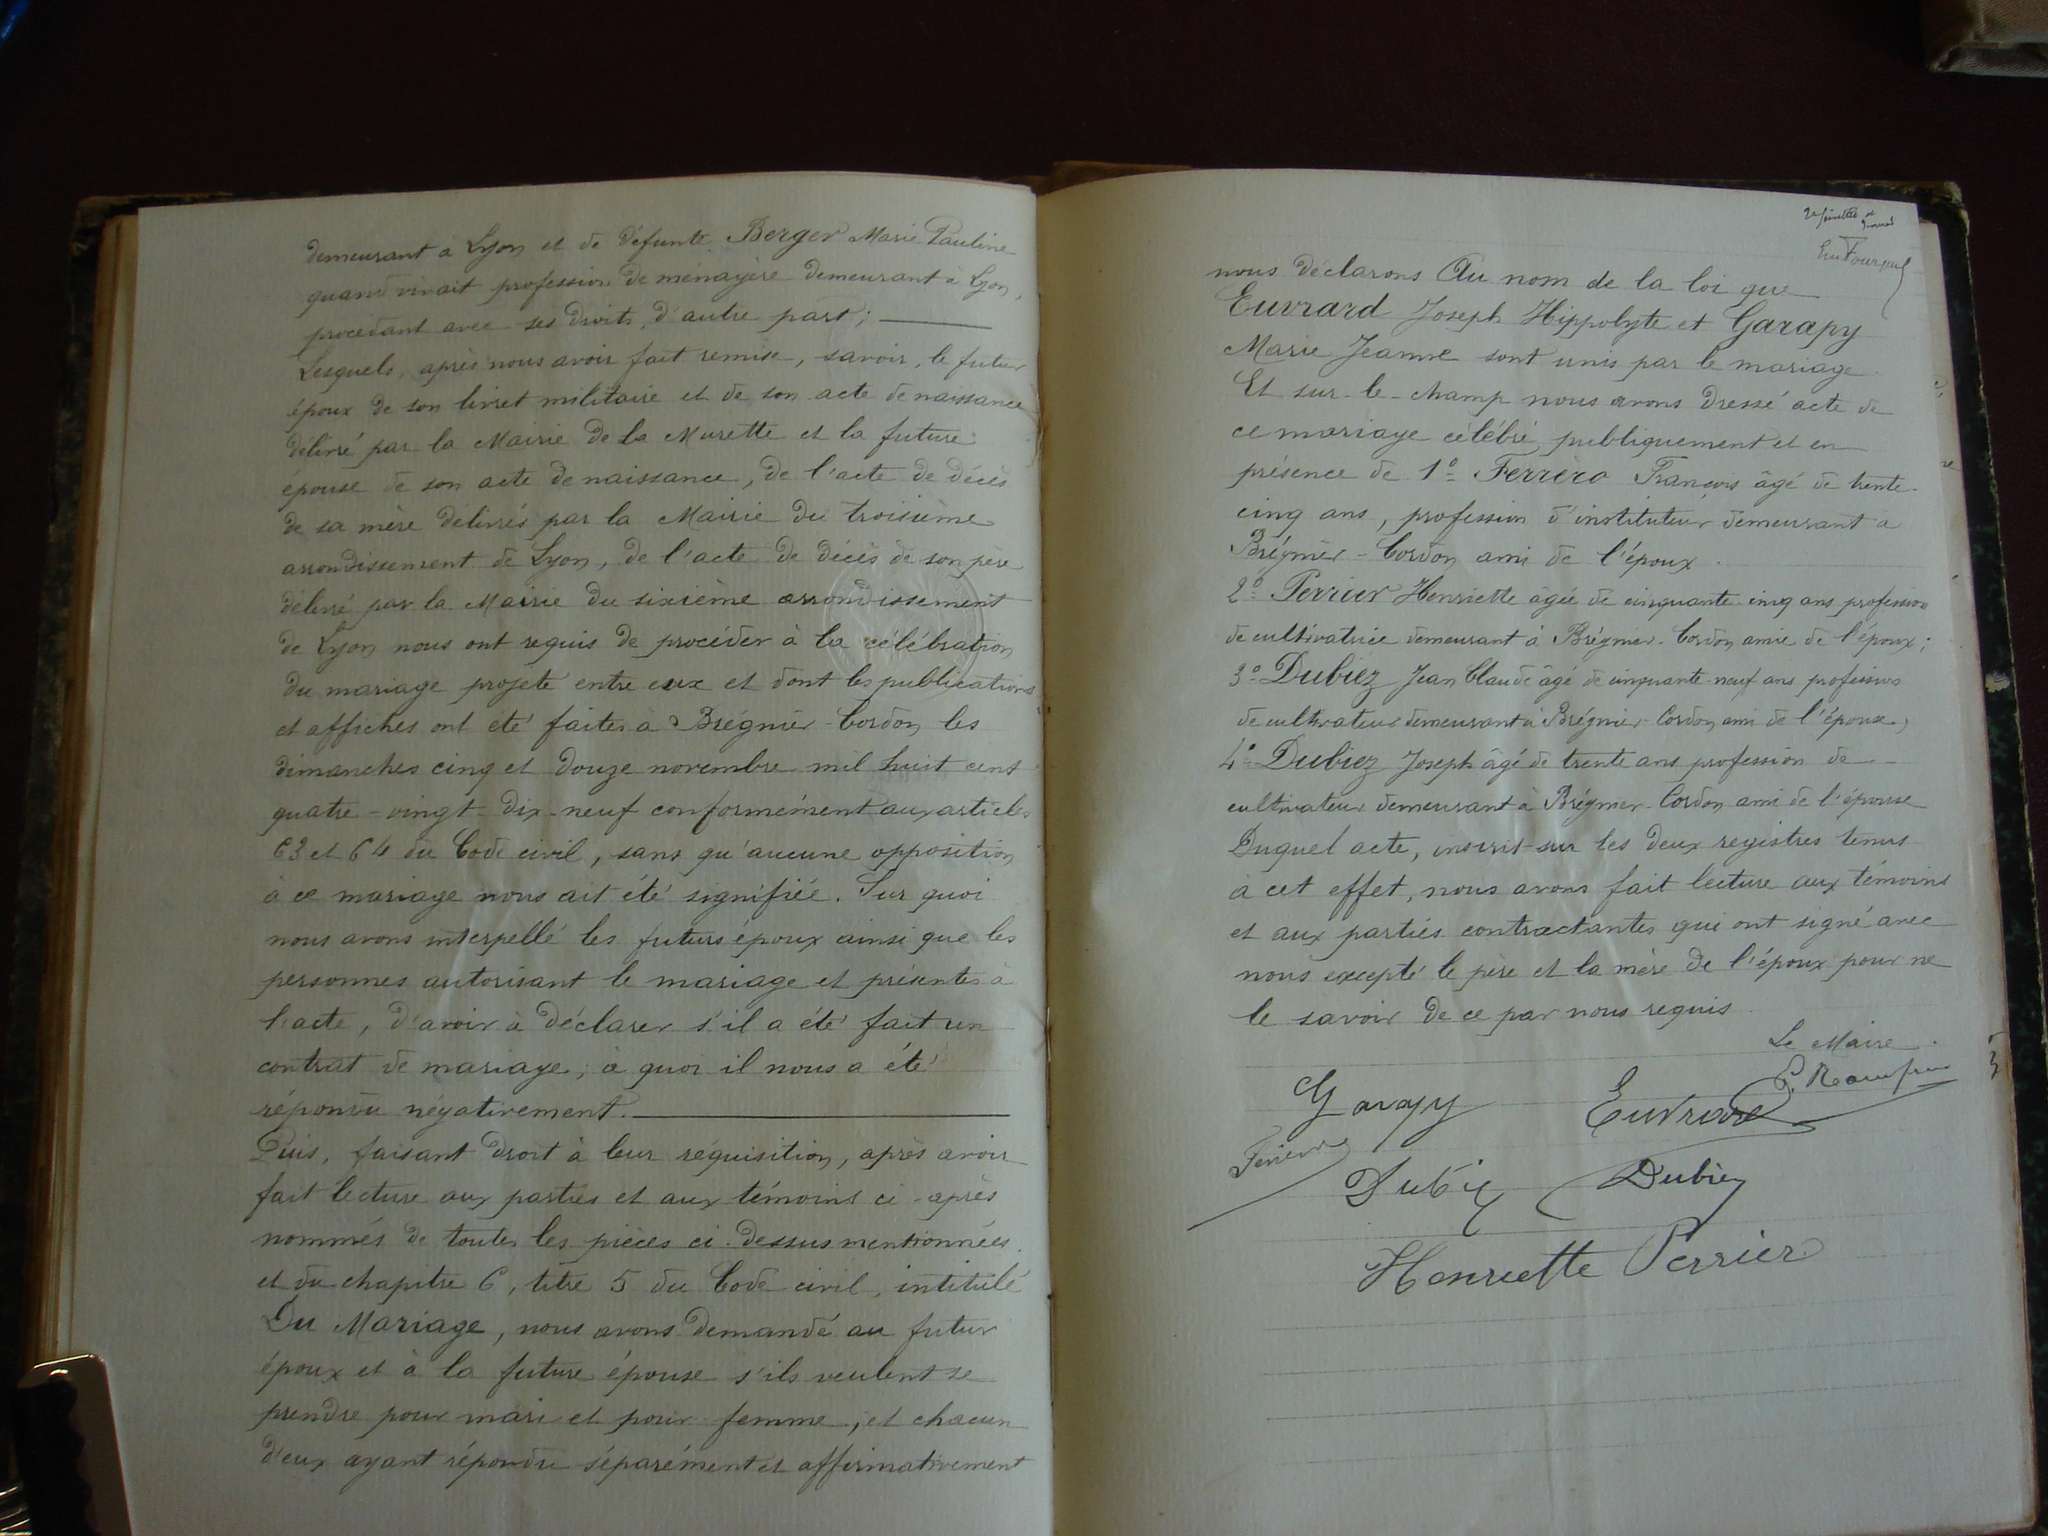 demeurant à Lyon et de défunte Berger Marie Pauline
quand vivait profession de ménagère demeurant à Lyon,
procédant avec ses droits, d'autre part;
Lesquels, après nous avoir fait remise, savoir, le futur
époux de son livret militaire et de son acte de naissance
délivré par la Mairie de la Murette et la future
épouse de son acte de naissance, de l'acte de décès
de sa mère délivrés par la Mairie du troisième
arrondissement de Lyon, de l'acte de décès de son père
délivré par la Mairie du sixième arrondissement
de Lyon nous ont requis de procéder à la célébration
du mariage projeté entre eux et dont les publications
et affiches ont été faites à Brégnier-Cordon les
dimanches cinq et douze novembre mil huit cent
quatre-vingt-dix-neuf conformément aux articles
63 et 64 du Code civil, sans qu'aucune opposition
à ce mariage nous ait été signifiée. Sur quoi
nous avons interpellé les futurs époux ainsi que les
personnes autorisant le mariage et présentes à
l'acte, d'avoir à déclarer s'il a été fait un
contrat de mariage; à quoi il nous a été
répondu négativement.
Puis, faisant droit à leur réquisition, après avoir
fait lecture aux parties et aux témoins ci-après
nommés de toutes les pièces ci-dessus mentionnées
et du chapitre 6, titre 5 du Code civil, intitulé
Du Mariage, nous avons demandé au futur
époux et à la future épouse s'ils veulent se
prendre pour mari et pour femme, et chacun
d'eux ayant répondu séparément et affirmativement
nous déclarons Au nom de la loi que
Euvrard Joseph Hippolyte et Garapy
Marie Jeanne sont unis par le mariage.
Et sur-le-champ nous avons dressé acte de
ce mariage célébré publiquement et en
présence de 1º Ferréro François âgé de trente-
cinq ans, profession d'instituteur demeurant à
Brégnier-Cordon ami de l'époux.
2º Perrier Henriette âgée de cinquante-cinq ans profession
de cultivatrice demeurant à Brégnier-Cordon amie de l'époux;
3º Dubiez Jean Claude âgé de cinquante-neuf ans profession
de cultivateur demeurant à Brégnier-Cordon ami de l'épouse,
4º Dubiez Joseph âgé de trente ans profession de
cultivateur demeurant à Brégnier-Cordon ami de l'épouse
Duquel acte, inscrit sur les deux registres tenus
à cet effet, nous avons fait lecture aux témoins
et aux parties contractantes qui ont signé avec
nous excepté le père et la mère de l'époux pour ne
le savoir de ce par nous requis.
Le Maire
Garapy Euvrard
Dubiez Dubiez
Henriette Perrier